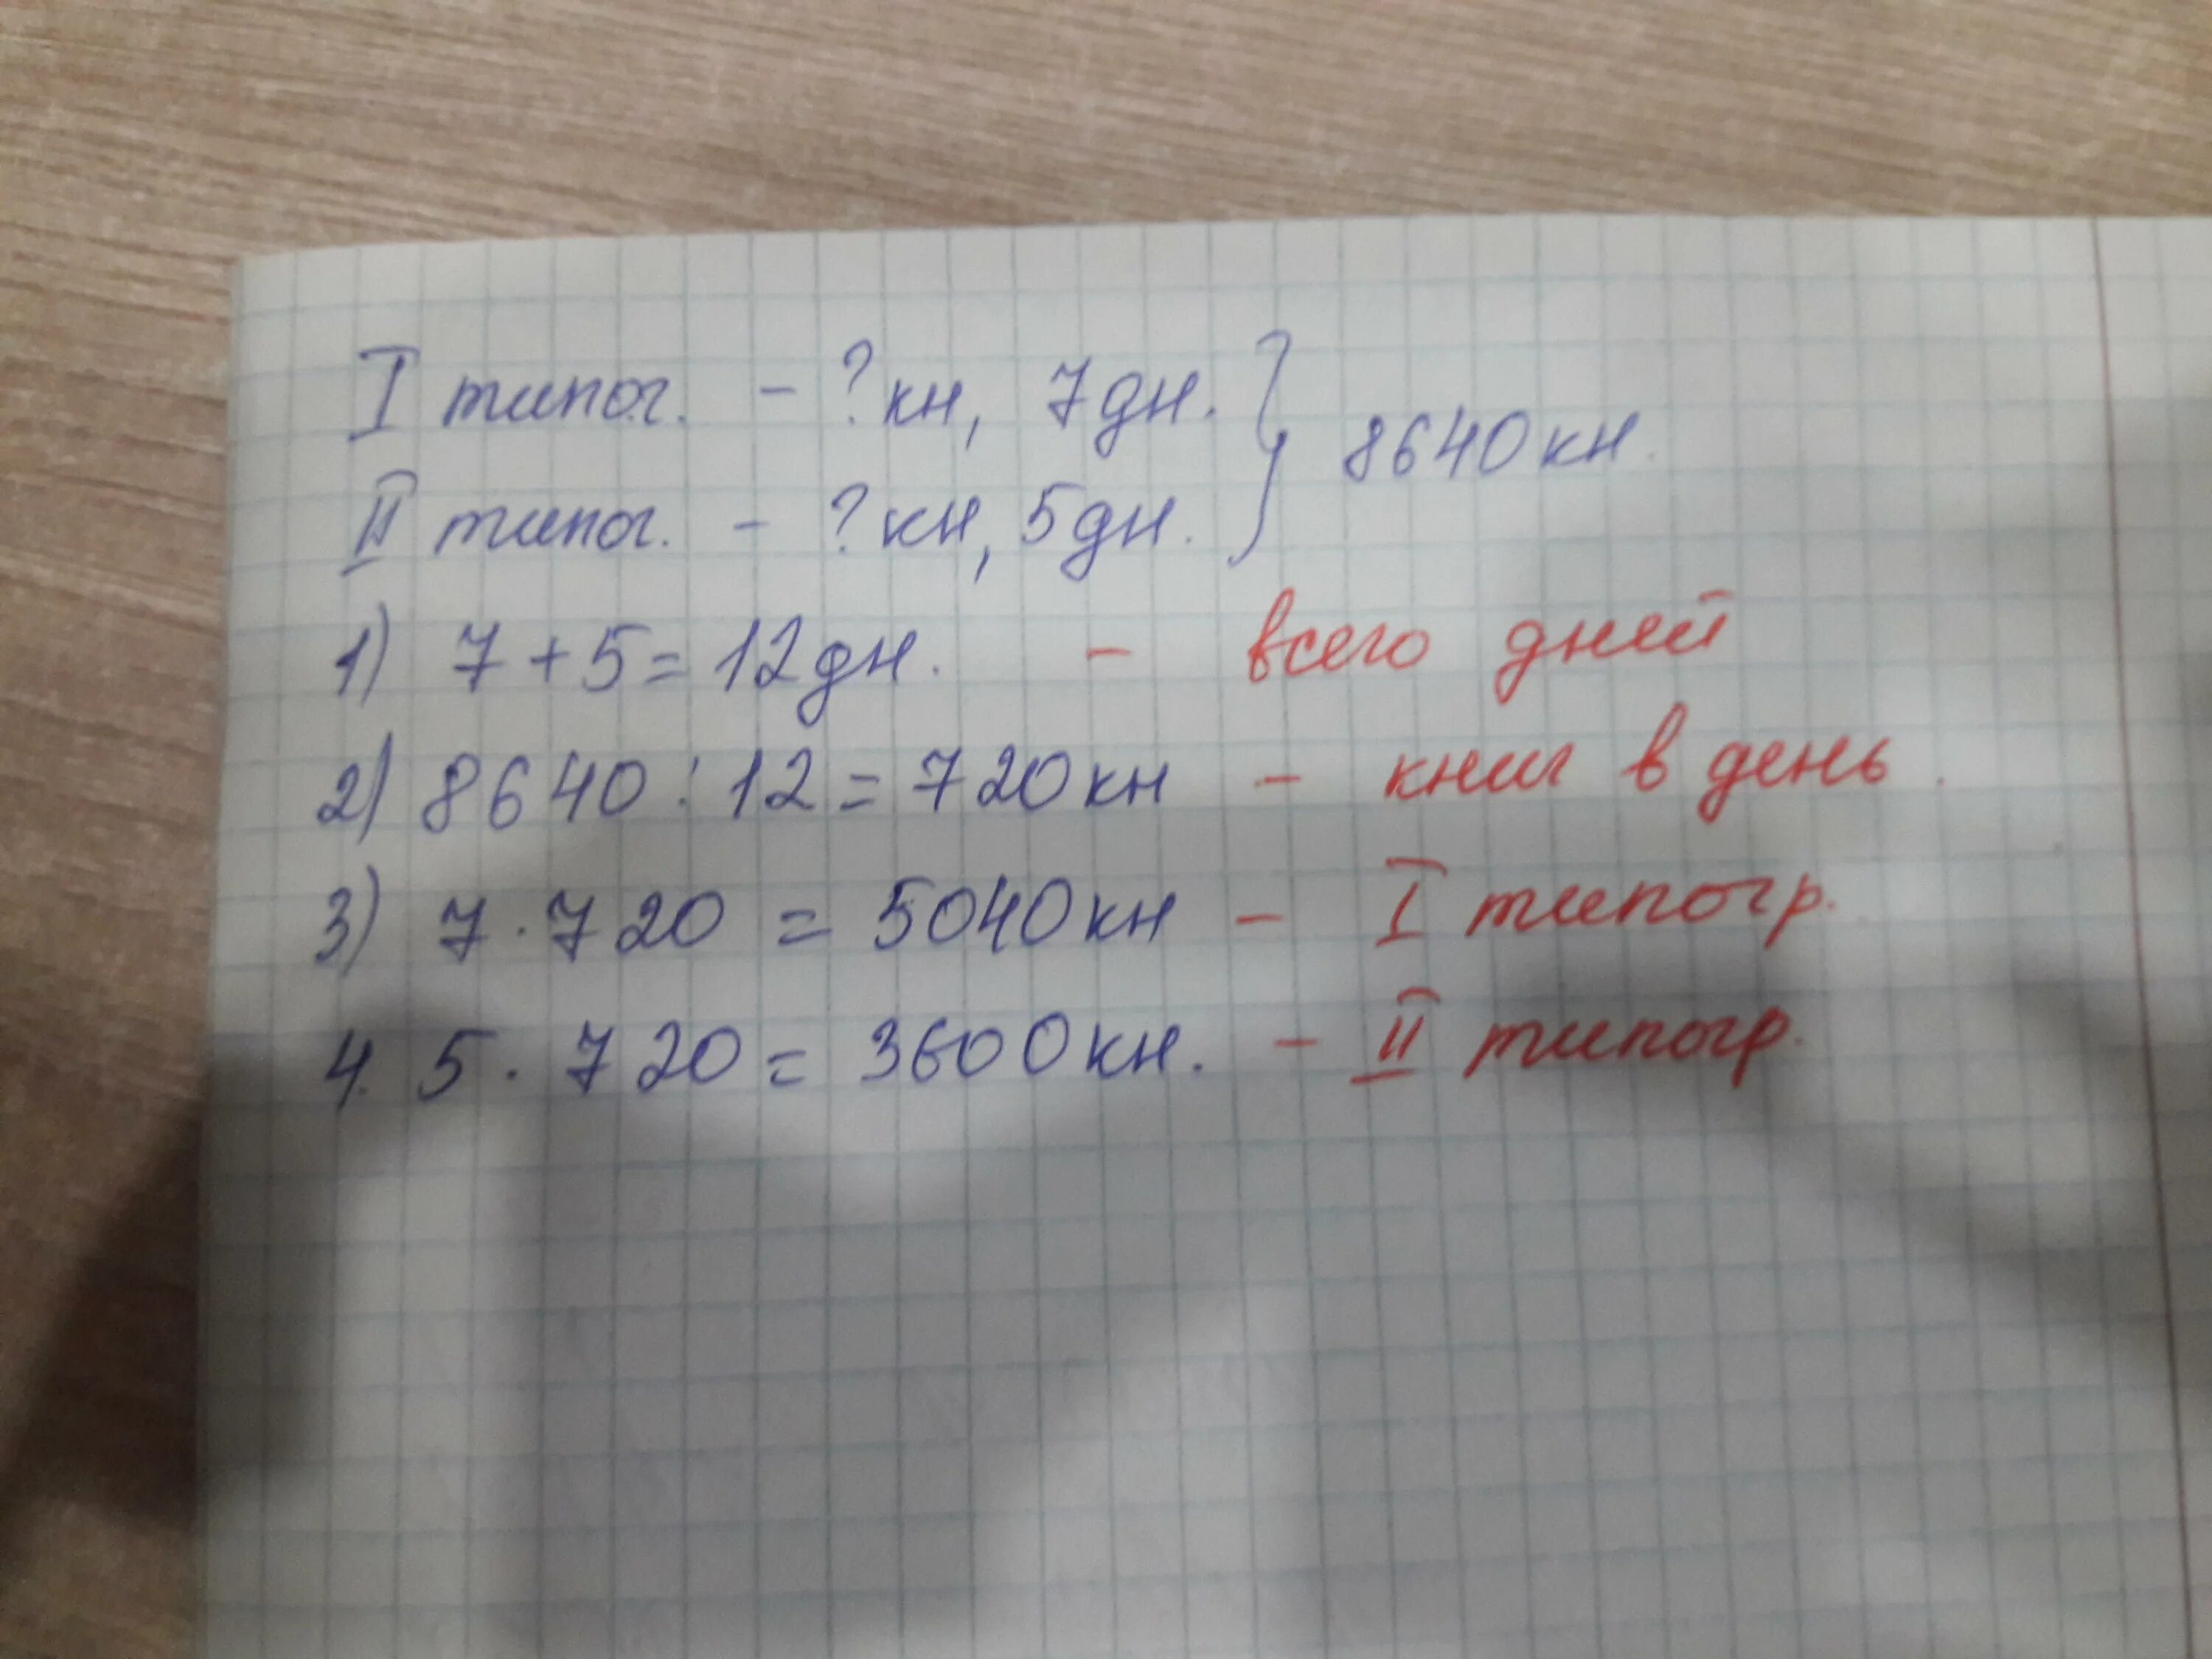 I типог. - ? кн, 7 дн. } 8640 кн.
II типог. - ? кн, 5 дн.
1) 7 + 5 = 12 дн. - всего дней
2) 8640 : 12 = 720 кн - книг в день.
3) 7 · 720 = 5040 кн - I типогр.
4. 5 · 720 = 3600 кн. - II типогр.